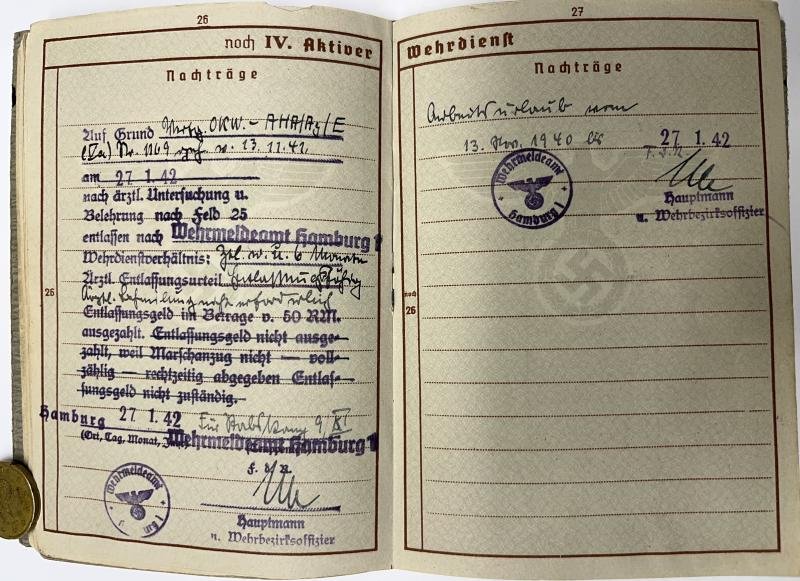 26
noch IV. Aktiver
Nachträge
Auf Grund Verfg. OKW. - AHA/Ag/E
(Va) Nr. 1169 v. 13.11.41.
am 27 1.42
nach ärztl. Untersuchung u.
Belehrung nach Feld 25
entlassen nach Wehrmeldeamt Hamburg 1
Wehrdienstverhältnis: w. u. 6 Monate
Ärztl. Entlassungsurteil
Ärztl. nicht erforderlich
Entlassungsgeld im Betrage v. 50 RM.
ausgezahlt. Entlassungsgeld nicht ausge-
zahlt, weil Marschanzug nicht — voll-
zählig — rechtzeitig abgegeben Entlas-
sungsgeld nicht zuständig.
Hamburg 27 1.42 Für Stabskomp. 9./XI
(Ort, Tag, Monat, Wehrmeldeamt Hamburg 1
F. d. R.
Wehrmeldeamt
Hauptmann
u. Wehrbezirksoffizier
26
27
Wehrdienst
Nachträge
Arbeitsurlaub vom
13. Nov. 1940 bis 27 1.42
Wehrmeldeamt
Hamburg 1
Hauptmann
u. Wehrbezirksoffizier
noch
26